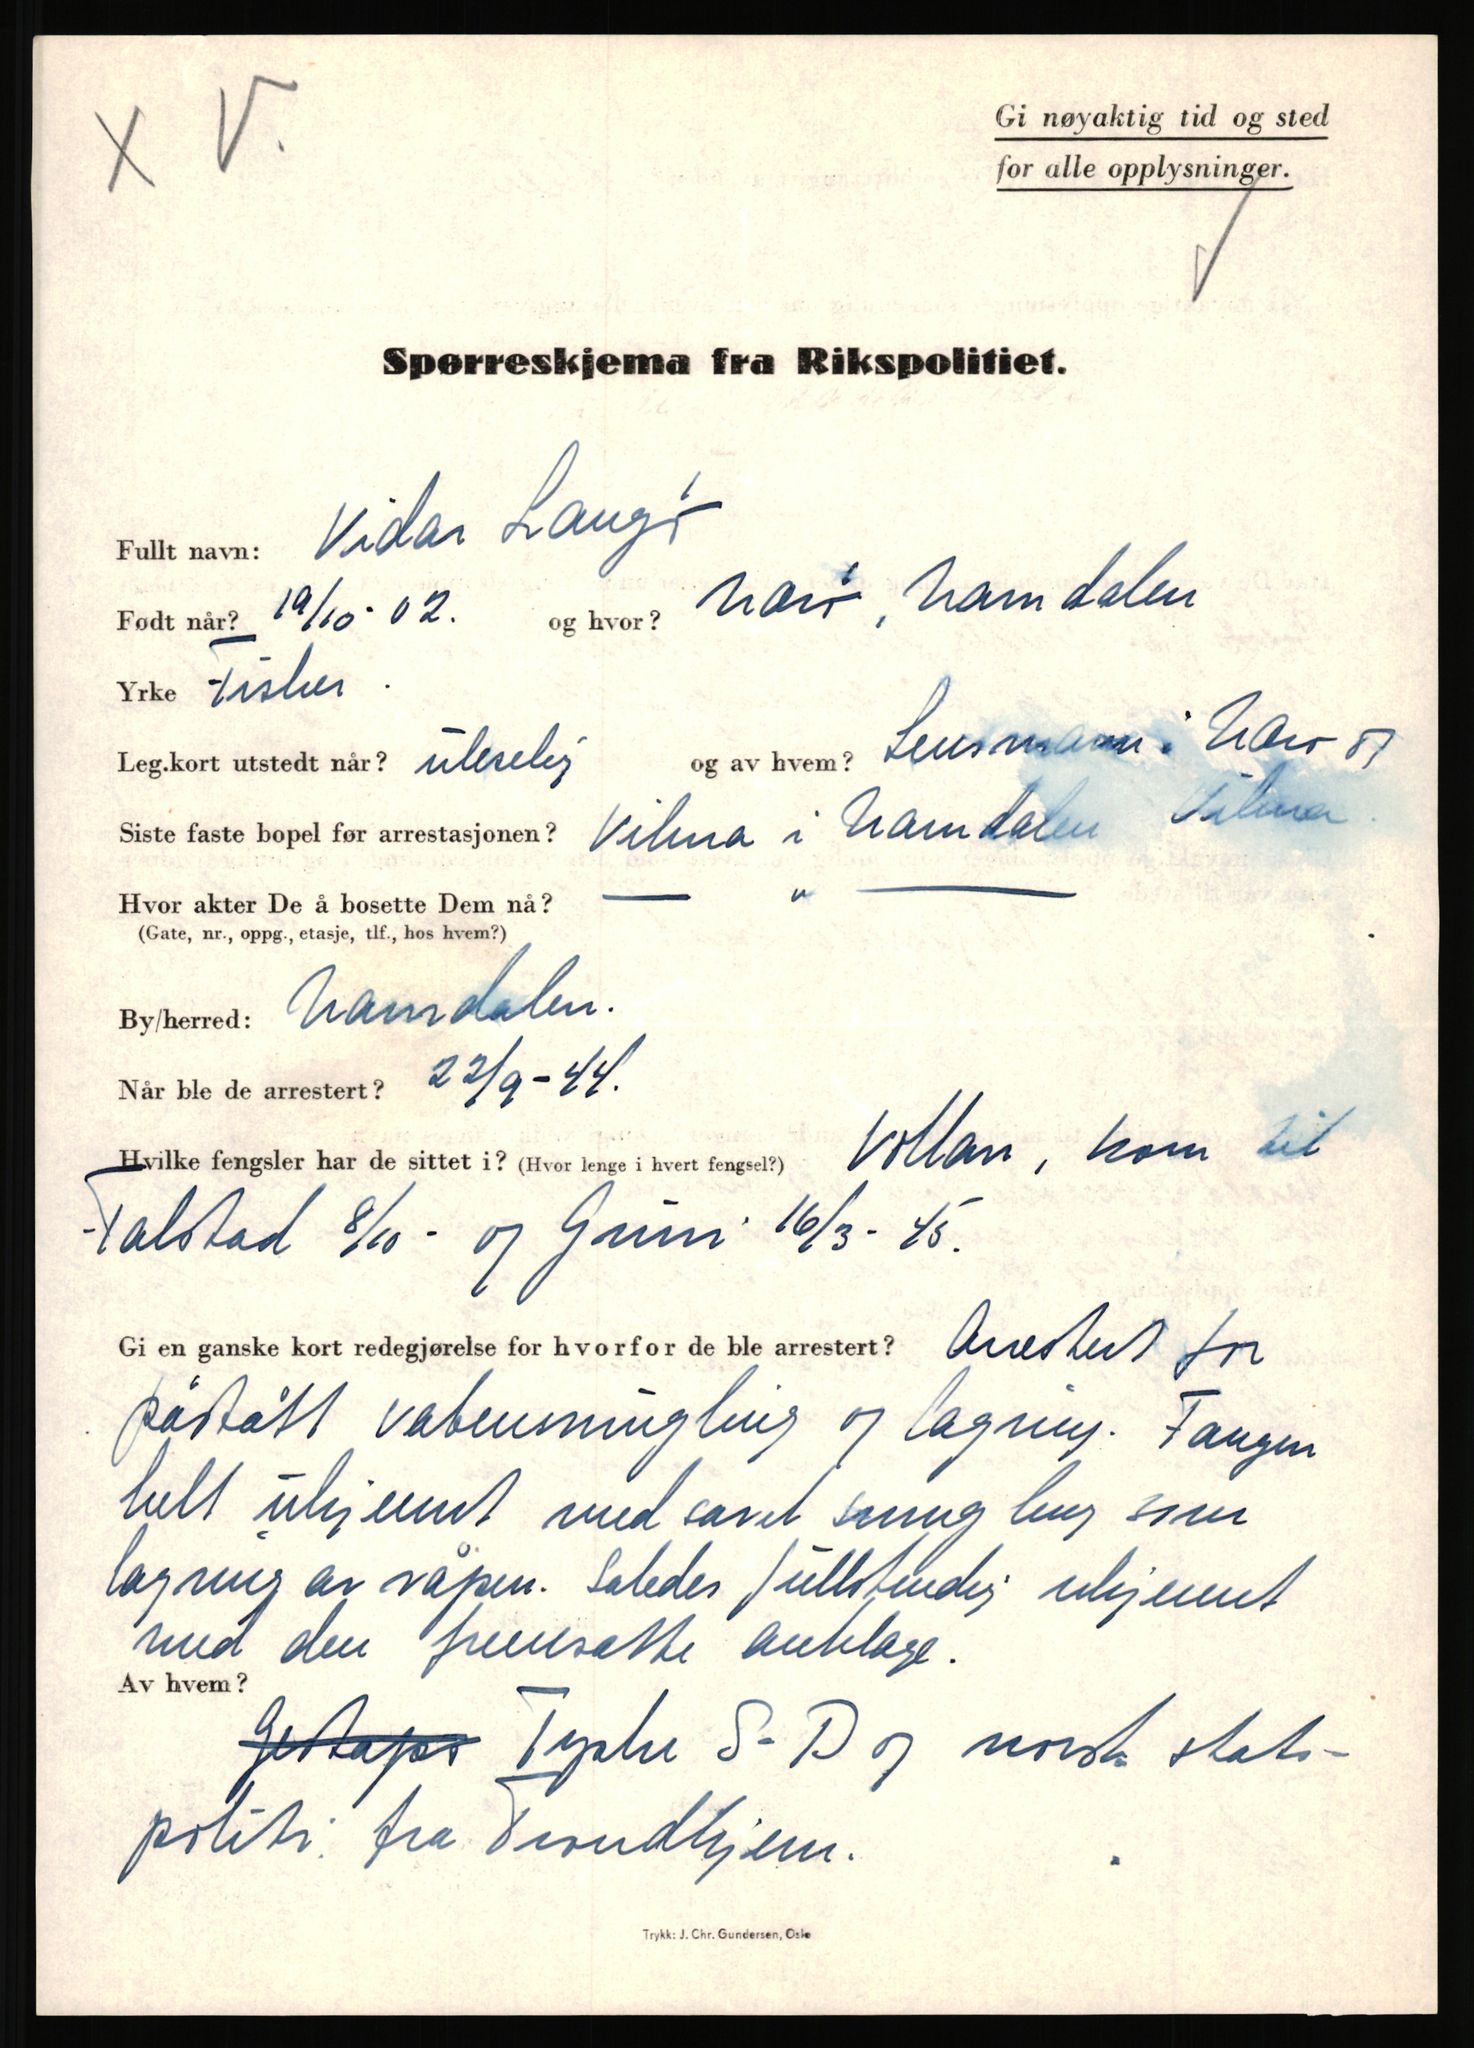 X V.
Gi nøyaktig tid og sted
for alle opplysninger.
Spørreskjema fra Rikspolitiet.
Fullt navn: Vidar Langö
Født når? 19/10-02. og hvor? Närö, Namdalen
Yrke Fisker.
Leg.kort utstedt når? uleselig og av hvem? Lensmann i Närö og
Vikna.
Siste faste bopel før arrestasjonen? Vikna i Namdalen
Hvor akter De å bosette Dem nå? — " —
(Gate, nr., oppg., etasje, tlf., hos hvem?)
By/herred: Namdalen.
Når ble de arrestert? 22/9-44.
Hvilke fengsler har de sittet i? (Hvor lenge i hvert fengsel?) Vollan, kom til
Falstad 8/10- og Grini 16/3-45.
Gi en ganske kort redegjørelse for hvorfor de ble arrestert? Arrestert for
påstått vabensmugling og lagring. Fangen
helt ukjennt med savel smugling som
lagring av våpen. Saledes fullstendig ukjennt
med den fremsatte anklage.
Av hvem?
Gestapo Tyske S-D og norsk stats-
politi fra Trondhjem.
Trykk: J. Chr. Gundersen, Oslo